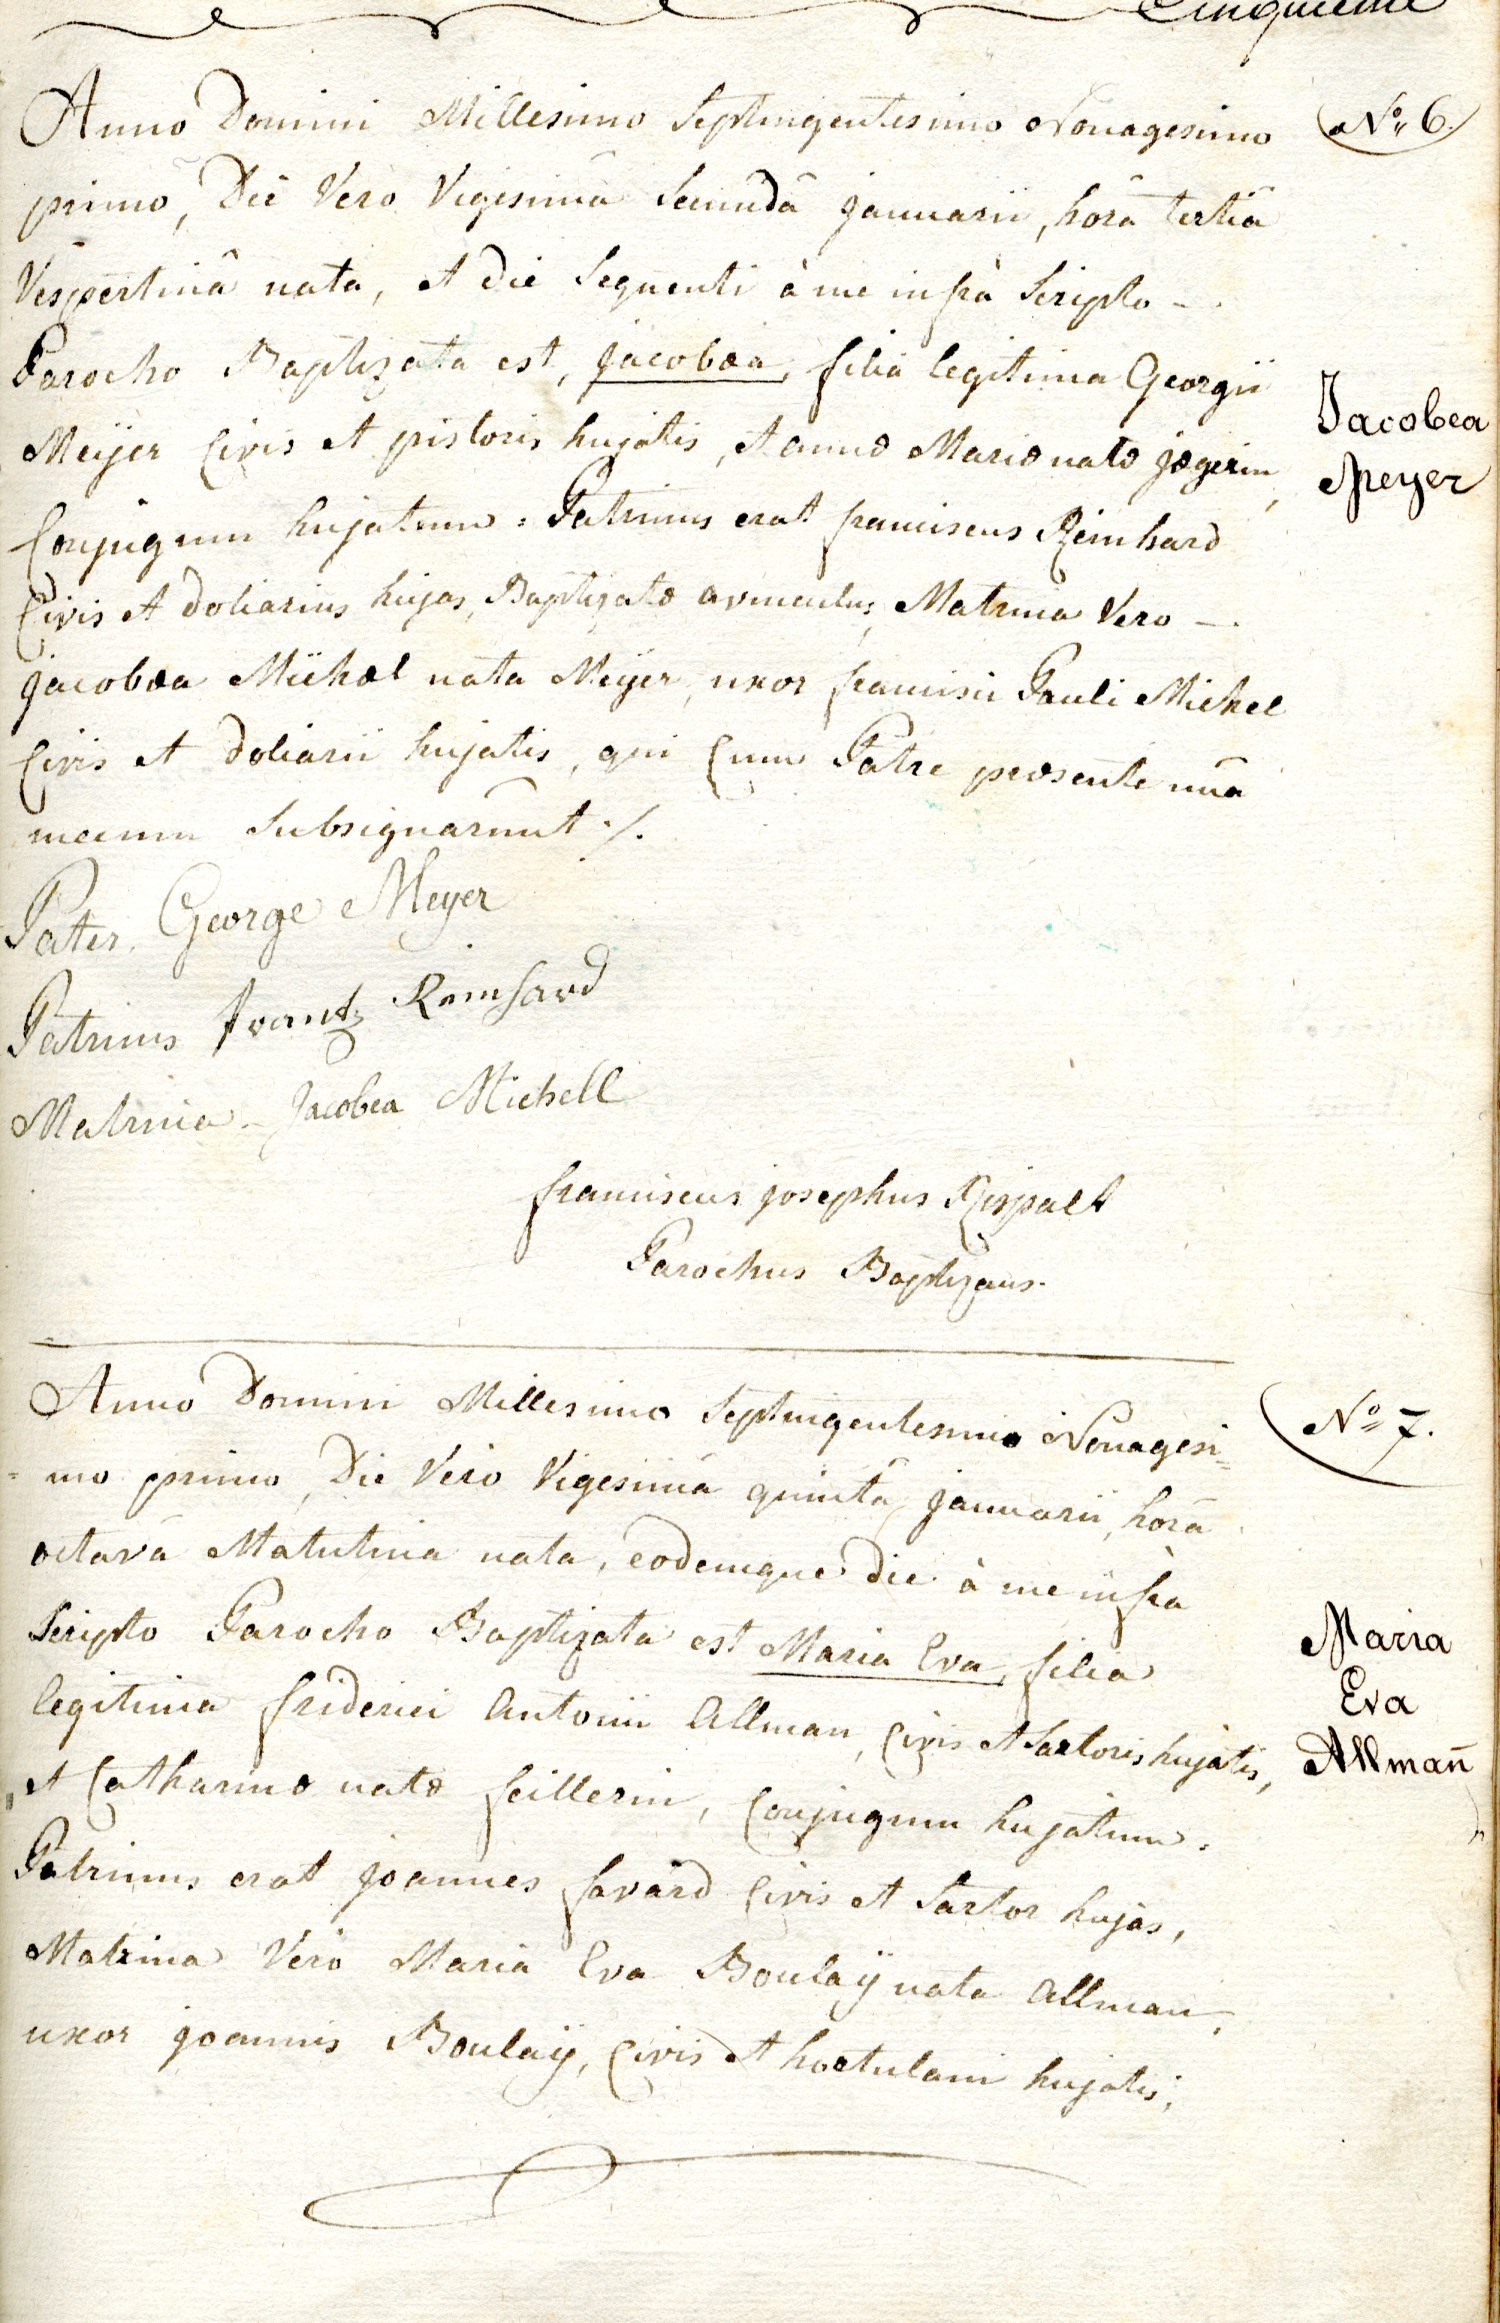 Cinquieme
Anno Domini Millesimo Septingentesimo Nonagesimo
N° 6.
primo, Die Vero Vigesimâ Secundâ januarii, horâ tertiâ
Vespertinâ nata, et die Sequenti à me infrà Scripto -.
Parocho Baptizata est, jacobæa, filia legitima Georgii
Meÿer Civis et pistoris hujatis, et annæ Mariæ natæ jægerin,
Jacobea
Meyer
Conjugum hujatum. Patrinus erat franciscus Reinhard
Civis et doliarius hujas, Baptizatæ avunculus, Matrina Vero -.
jacobæa Michæl nata Meÿer, uxor francisci Pauli Michel
Civis et doliarii hujatis, qui Cum Patre præsente unâ
mecum Subsignarunt ./.
Pater. George Meyer
Patrinus Frantz Reinhard
Matrina - Jacobea Michell
franciscus josephus Rispalt
Parochus Baptizans.
Anno Domini Millesimo Septingentesimo Nonagesi=
N° 7.
=mo primo, Die Vero Vigesimâ quintâ januarii, horâ
octavâ Matutina nata, eodemque die à me infrà
Scripto Parocho Baptizata est Maria Eva, filia
Maria
Eva
Allman̄
legitima friderici Antonii Allman, Civis et Sartoris hujatis,
et Catharinæ natæ feillerin, Conjugum hujatum.
Patrinus erat joannes favard Civis et Sartor hujas,
Matrina Vero Maria Eva Boulaÿ nata Allman,
uxor joannis Boulaÿ, Civis et hortulani hujatis,